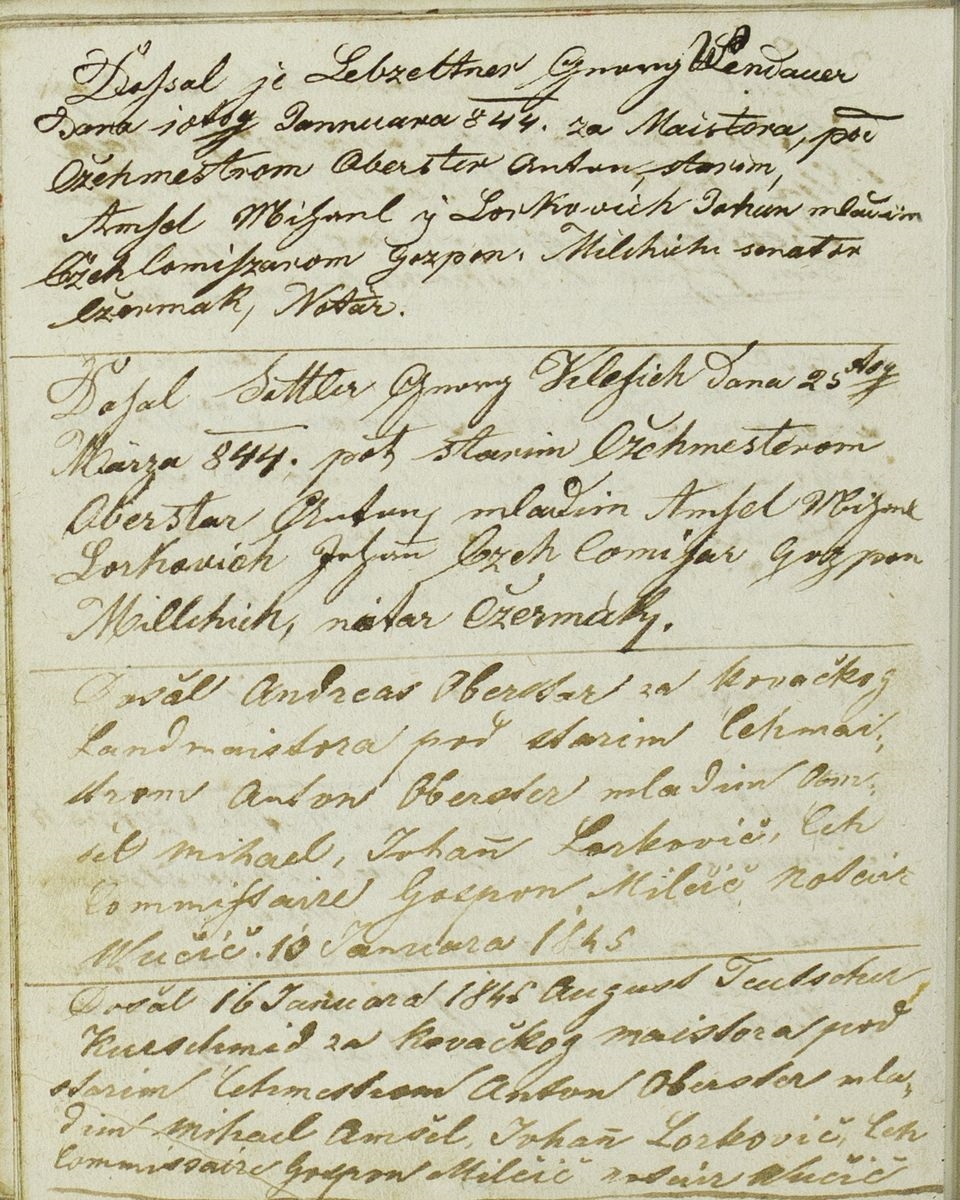 Dossal je Lebzeltner Gyurry Wendauer
Dana 10tog Jannuara 844. za Maistora, pod
Czehmestrom Oberster Antun, starim,
Amsel Mihael y Lorkovich Johan mladim
Czeh Comisszarom Gozpon. Milchich senator
Czermak, Notar.
Dosal Sattler Gyurry Velesich Dana 25tog
Märza 844. pot starim Czehmesterom
Oberstar Antun, mladim Amsel Mihael
Lorkovich Johañ Czeh Comisar Gozpon
Millchich, notar Czermak.
Došäl Andreas Oberster za kovačkog
Landmaistora pod starim Cehmai,
strom Anton Oberster mladim Am,
šel Mihael, Johañ Lorkovič, Ceh
Commissaire Gospon Milčič Notair
Wučič. 10 Januara 1845
Došäl 16 Januara 1845 August Teutscher
Kurschmid za kovačkog maistora pod
starim Cehmestrom Anton Oberster mla,
dim Mihael Amšel, Johañ Lorkovič, Ceh
Commissaire Gospon Milčič notair Wučič